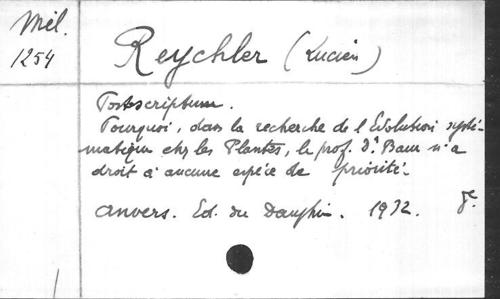 Mél.
1254
Reychler (Lucien)
Postscriptum.
Pourquoi, dans la recherche de l'Evolution systé-
matique chez les Plantes, le prof. Dr. Baur n'a
droit à aucune espèce de priorité.
Anvers. Ed. du Dauphin. 1932.